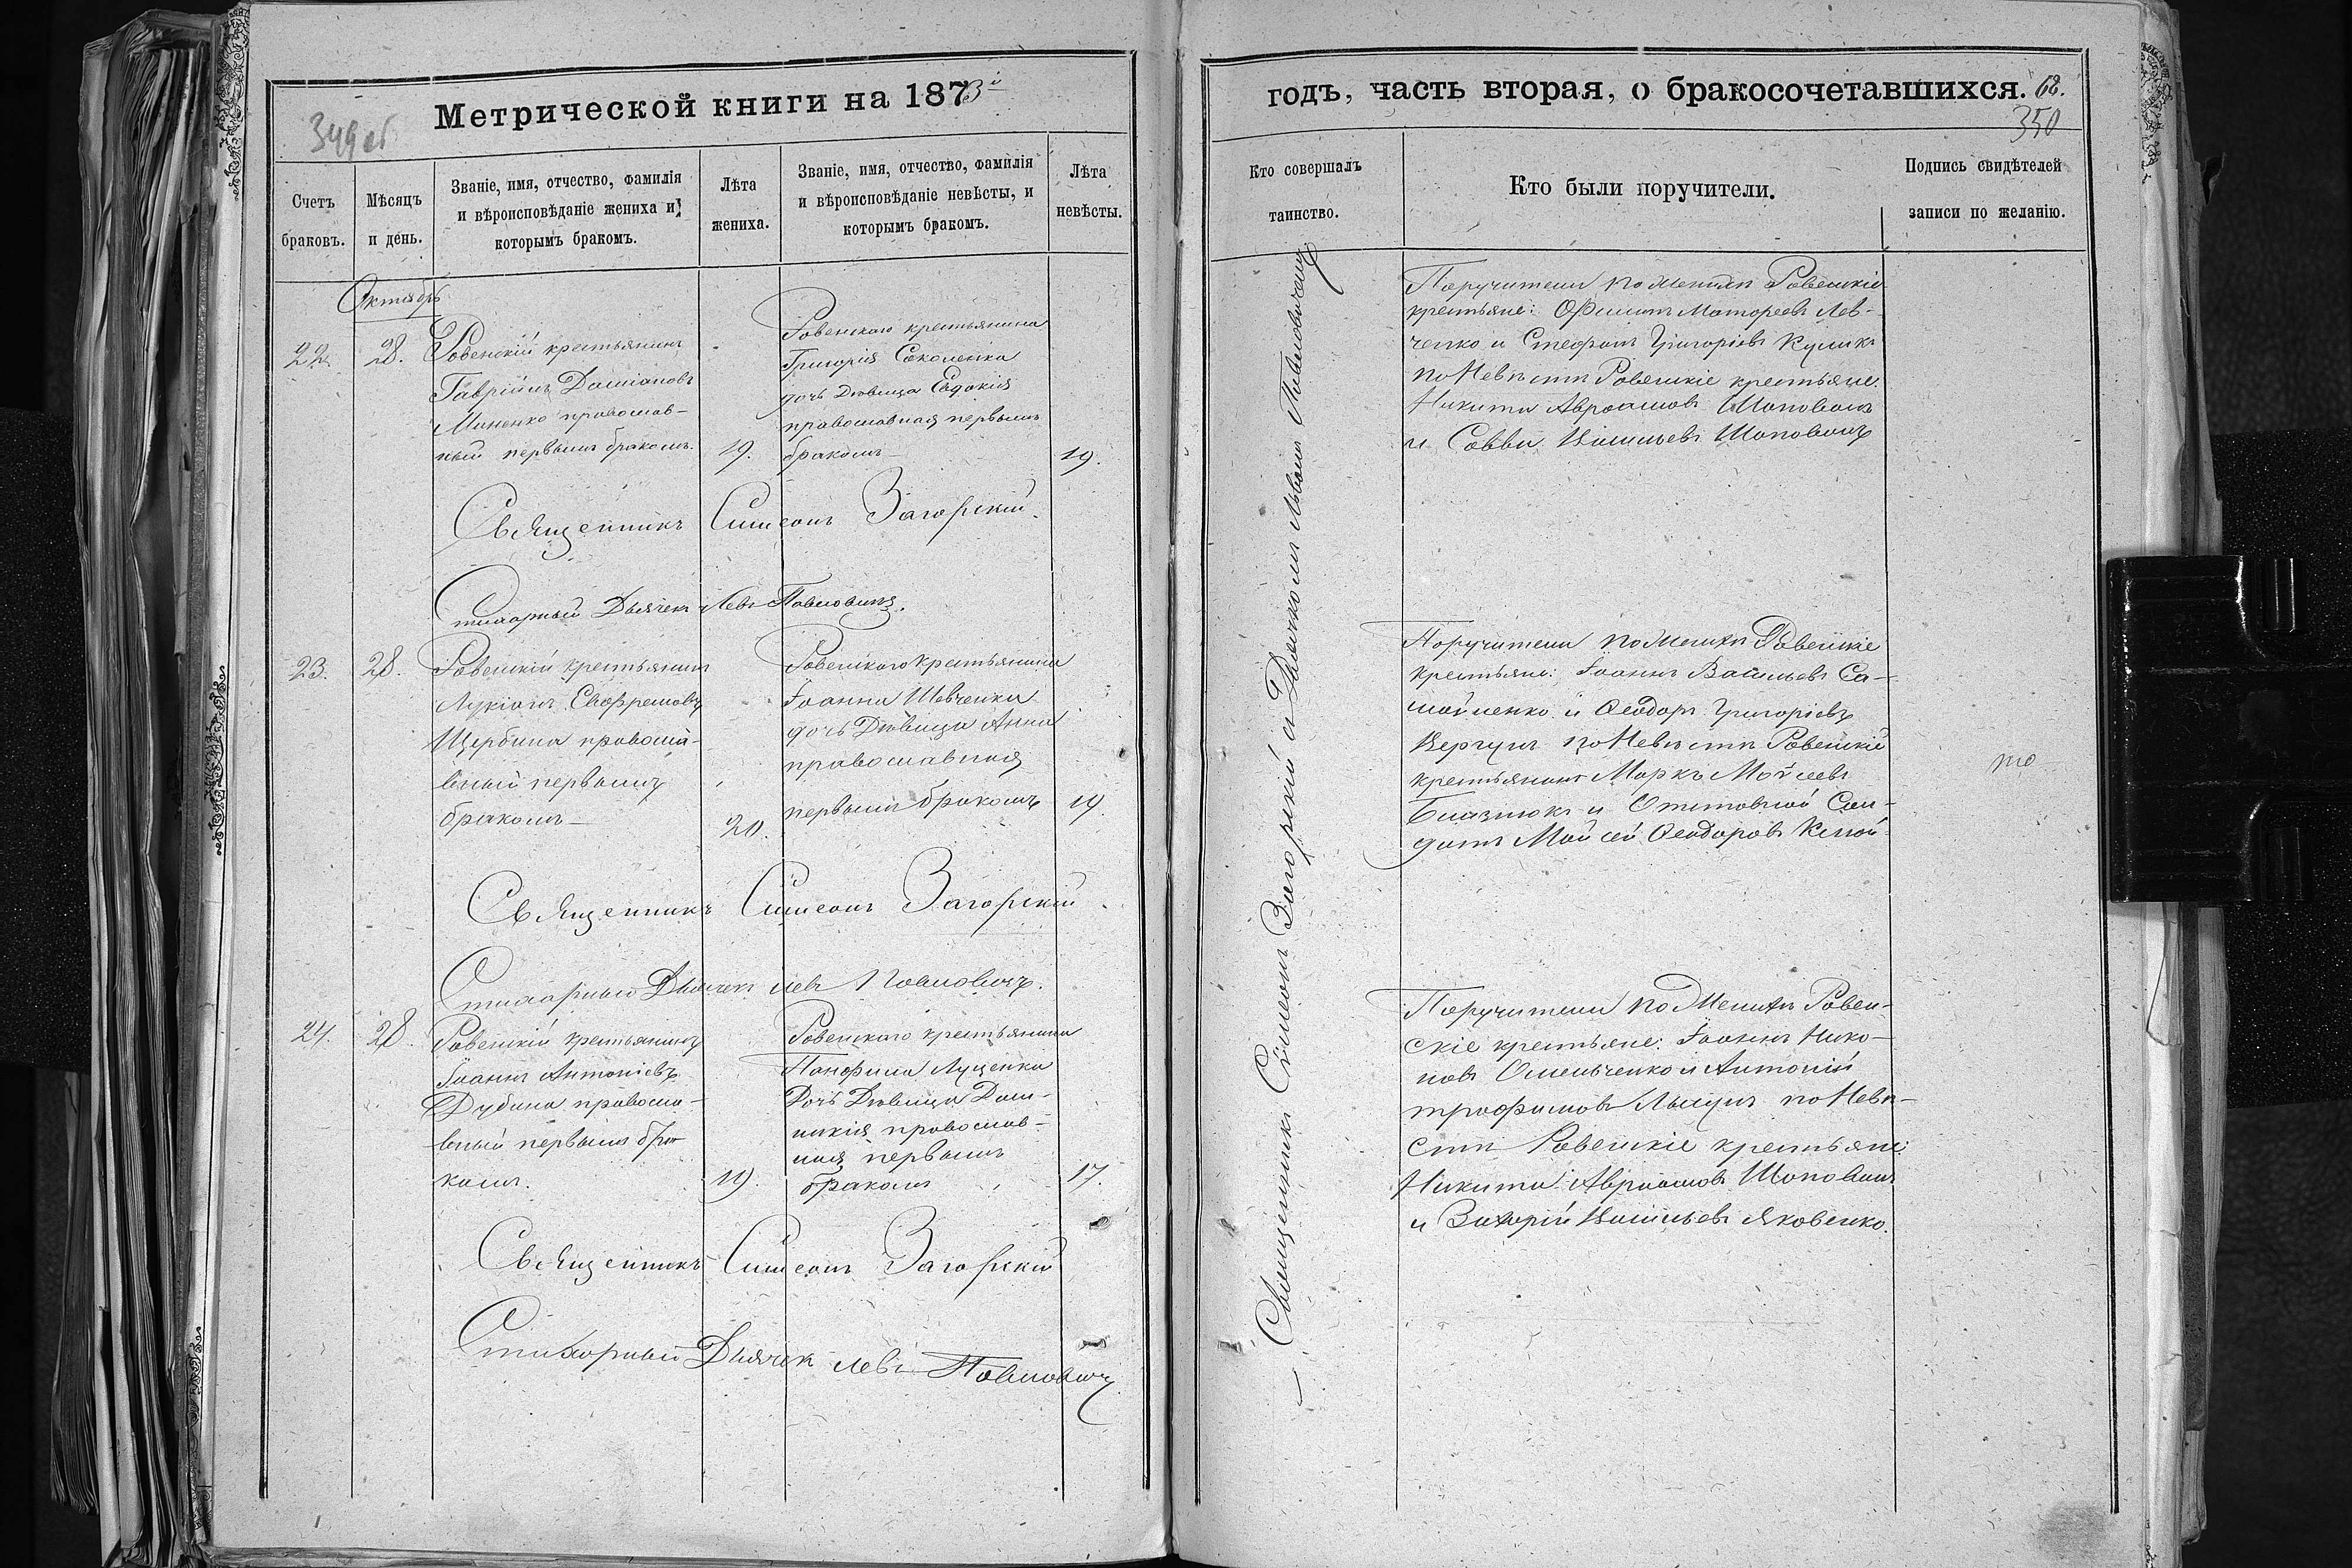 Метрической книги на 1873й
349 об
Счетъ браковъ.
Мѣсяцъ и день.
Званіе, имя, отчество, фамилія и вѣроисповѣданіе жениха и которымъ бракомъ.
Лѣта жениха.
Званіе, имя, отчество, фамилія и вѣроисповѣданіе невѣсты, и которымъ бракомъ.
Лѣта невѣсты.
Октябрь
22.
28.
Ровенскій крестьянинъ
Гавріилъ Даміановъ
Миненко православ-
ный первымъ бракомъ.
19.
Ровенскаго крестьянина
Григорія Соколенка
дочь дѣвица Евдокія
православная первымъ
бракомъ
19.
Священникъ Симеонъ Загорскій.
Стихарный Дьячекъ Левъ Павловичъ.
23.
28.
Ровенскій крестьянинъ
Лукіанъ Евфремовъ
Щербина правосла-
вный первымъ
бракомъ
20.
Ровенскаго крестьянина
Іоанна Шевченка
дочь Дѣвица Анна
православная
первымъ бракомъ
19.
Священникъ Симеонъ Загорскій
Стихарный Дьячекъ Левъ Павловичъ.
24.
28.
Ровенскій крестьянинъ
Іоаннъ Антоніевъ
Дубина правосла-
вный первымъ бра-
комъ.
19.
Ровенскаго крестьянина
Панфила Луценка
Дочь Дѣвица Дом-
никія православ-
ная первымъ
бракомъ
17.
Священникъ Симеонъ Загорскій
Стихарный Дьячек Левъ Павловичъ
годъ, часть вторая, о бракосочетавшихся. 68.
350
Кто совершалъ таинство.
Кто были поручители.
Подпись свидѣтелей записи по желанію.
Священникъ Симеонъ Загорскій съ Дьячкомъ Львомъ Павловичемъ
Поручители по Женихѣ Ровенскіе
крестьяне: Филипъ Матфеевъ Лев-
ченко и Стефанъ Григоріевъ Куликъ
по Невѣстѣ Ровенскіе крестьяне
Никита Авраамовъ Шаповалъ
и Савва Васильевъ Шаповалъ
Поручители по Женихѣ Ровенскіе
крестьяне: Іоаннъ Васильевъ Са-
мойленко и Феодоръ Григоріевъ
Вергунъ по Невѣстѣ Ровенскій
крестьянинъ Маркъ Мойсеевъ
и Отставной Сол-
датъ Мойсей Феодоровъ
Поручители по Женихѣ Ровен-
скіе крестьяне: Іоаннъ Нико-
новъ Омельченко и Антоній
трофимовъ по Невѣ-
стѣ Ровенскіе крестьяне:
Никита Авраамовъ Шаповалъ
и Захарій Васильевъ Яковенко.